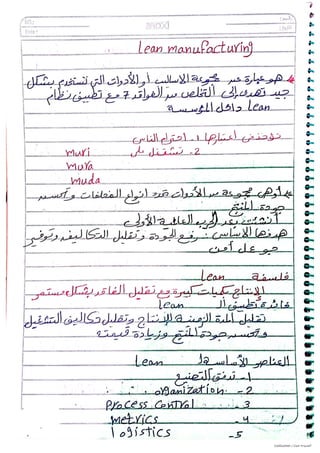 Lean manufacturing
هو عبارة عن مجموعة الاساليب أو الأدوات التي تستخدم بشكل
جيد تهدف إلى التخلص من الفواقد 7 مع تطبيق نظام
lean داخل المؤسسة
تؤخذ في اعتبارها 1- احترام الناس
2- تشتغل على muri
mura
muda
أو هي مجموعة من الأدوات ضد انواع المخلفات وتحسين
جودة المنتج
أنشئت بعد الحرب العالمية الأولى
هدفها الأساسي: رفع الجودة وتقليل التكاليف وتوفير
جو عمل آمن
فلسفة lean
الإنتاج بكميات كبيرة مع تقليل الفاقد بشكل مستمر
فائدة تطبيق الـ lean
تقليل المدة الزمنية للإنتاج وتقليل تكاليف التشغيل
وتحسين جودة المنتج وزيادة قيمته
العناصر الأساسية لـ lean
1- تدفق التصنيع
2- organization
3- Process control
4- metrics
5- logistics